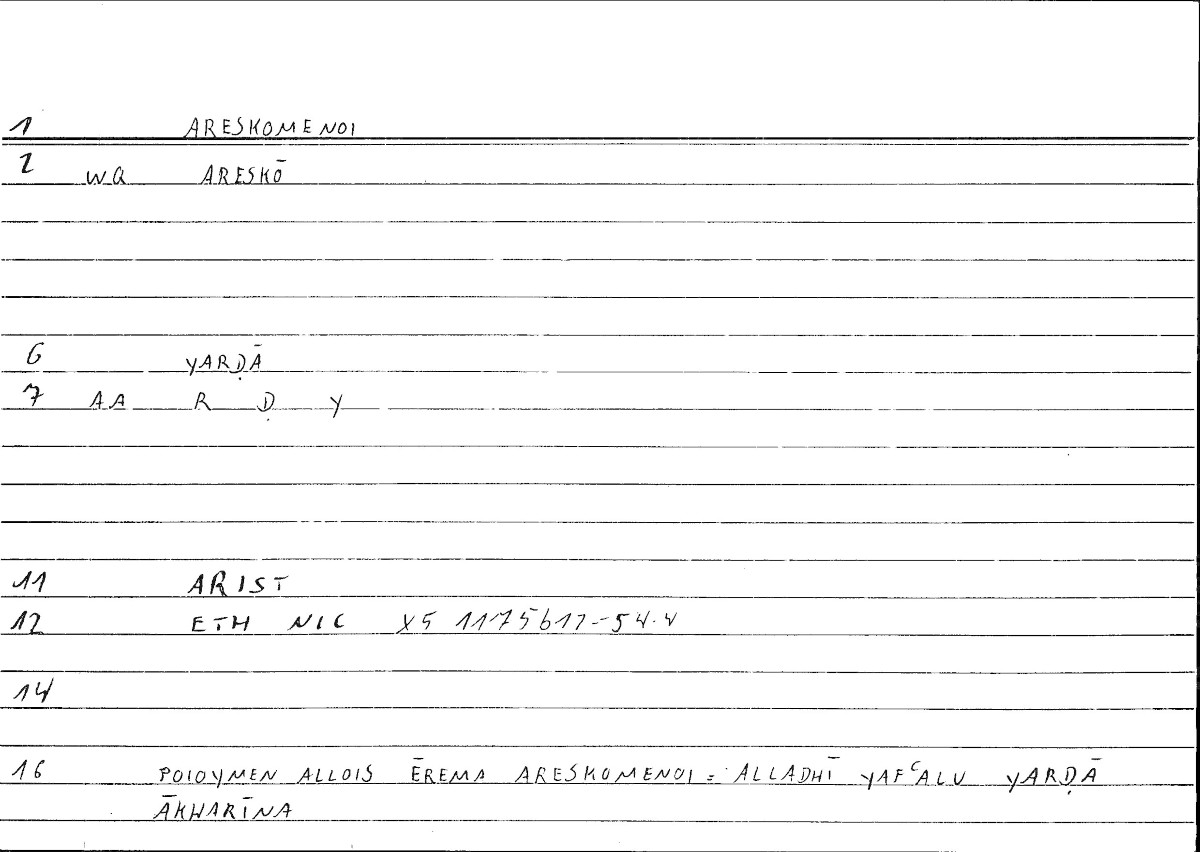 1 ARESKOMENOI
2 WQ ARESKŌ
6 YARḌĀ
7 AA R Ḍ Y
11 ARIST
12 ETH NIC X5 1175b17-54.4
14
16 POIOYMEN ALLOIS ĒREMA ARESKOMENOI = ALLADHĪ YAFʿALU YARḌĀ
ĀKHARĪNA